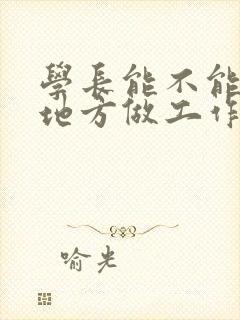 學長能不能
地方做工作
喻光